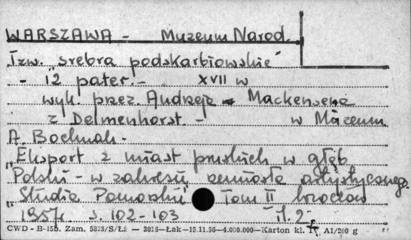 WARSZAWA - Muzeum Narod.
Tzw. "srebra podskarbiowskie"
- 12 pater. - XVII w
wyk. przez. Andrzeja Mackensena
z Delmenhorst. - w Muzeum
A. Bochnak -
"Eksport z miast pruskich w głąb
Polski - w zakresie rzemiosła artystycznego.
"Studia Pomorskie" Tom II Wrocław
1957. s. 102-103 il. 2-
CWD - B-15b. Zam. 5823/S/Łi — 3015—Łak—15.11.56—4.000.000—Karton kl. A1/200 g